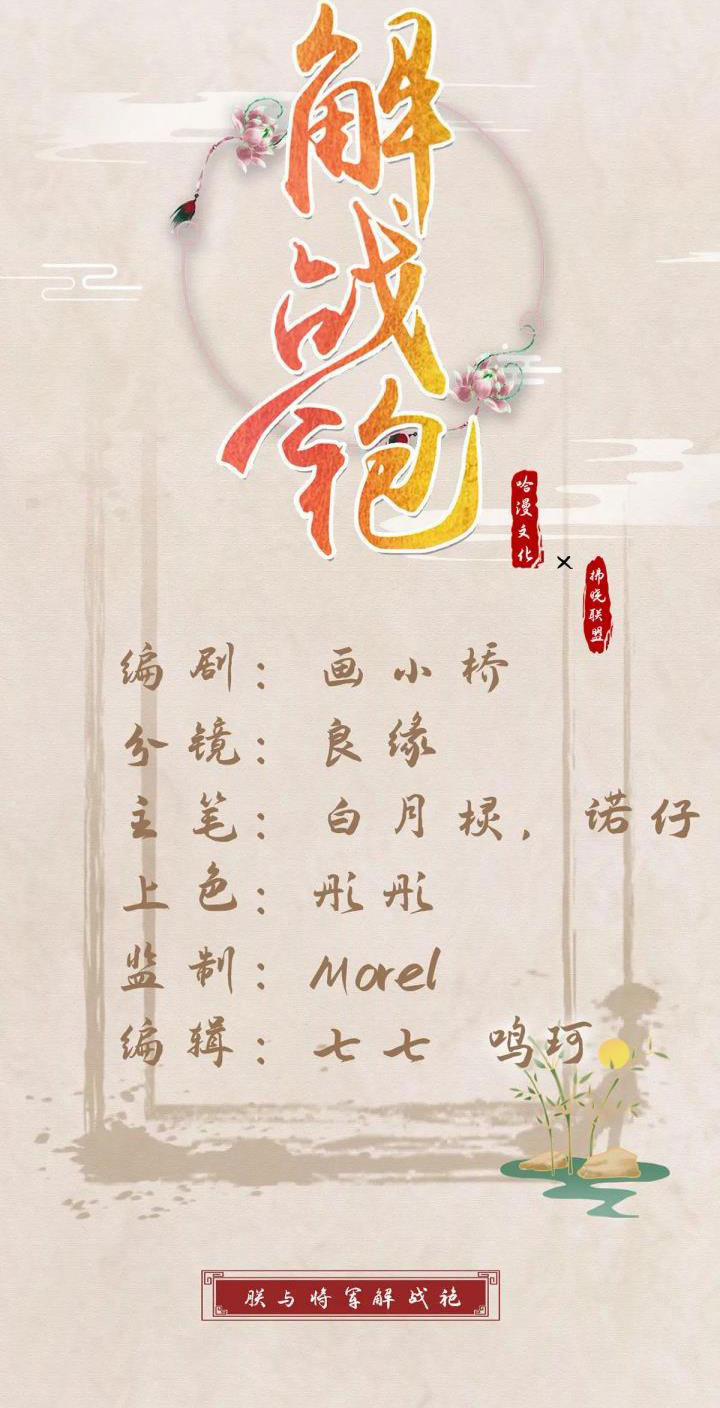 解战袍
哈漫文化
×
拂晓联盟
编剧：画小桥
分镜：良缘
主笔：白月棂，诺仔
上色：彤彤
监制：Morel
编辑：七七 鸣珂
朕与将军解战袍